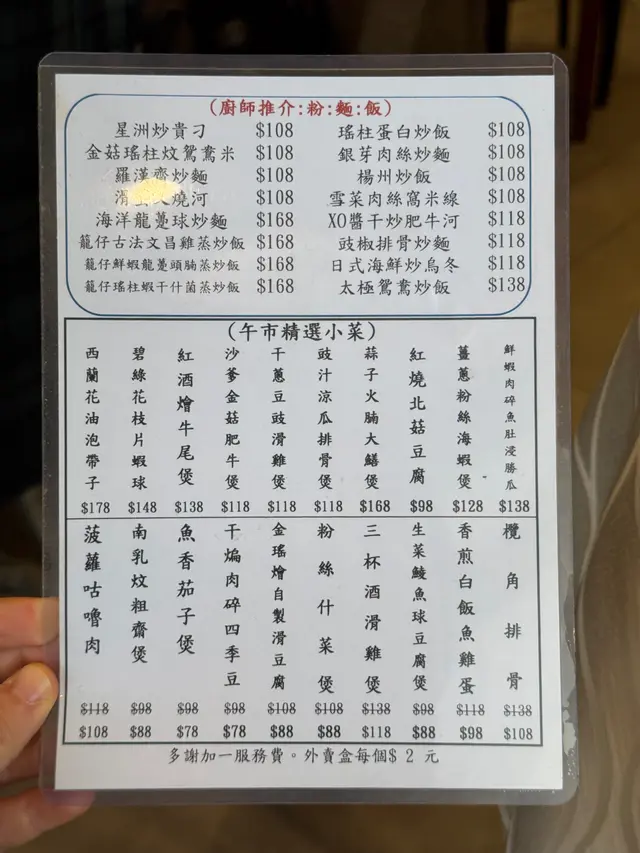 (廚師推介:粉:麵:飯)
星洲炒貴刁 $108
瑤柱蛋白炒飯 $108
金菇瑤柱炆鴛鴦米 $108
銀芽肉絲炒麵 $108
羅漢齋炒麵 $108
楊州炒飯 $108
滑 燒河 $108
雪菜肉絲窩米線 $108
海洋龍躉球炒麵 $168
XO醬干炒肥牛河 $118
籠仔古法文昌雞蒸炒飯 $168
豉椒排骨炒麵 $118
籠仔鮮蝦龍躉頭腩蒸炒飯 $168
日式海鮮炒烏冬 $118
籠仔瑤柱蝦干什菌蒸炒飯 $168
太極鴛鴦炒飯 $138
(午市精選小菜)
西蘭花油泡帶子 $178
碧綠花枝片蝦球 $148
紅酒燴牛尾煲 $138
沙爹金菇肥牛煲 $118
干蔥豆豉滑雞煲 $118
豉汁涼瓜排骨煲 $118
蒜子火腩大鱔煲 $168
紅燒北菇豆腐 $98
薑蔥粉絲海蝦煲 $128
鮮蝦肉碎魚肚浸勝瓜 $138
菠蘿咕嚕肉 $118 $108
南乳炆粗齋煲 $98 $88
魚香茄子煲 $98 $78
干煸肉碎四季豆 $98 $78
金瑤燴自製滑豆腐 $108 $88
粉絲什菜煲 $108 $88
三杯酒滑雞煲 $138 $118
生菜鯪魚球豆腐煲 $98 $88
香煎白飯魚雞蛋 $118 $98
欖角排骨 $138 $108
多謝加一服務費。外賣盒每個$ 2 元